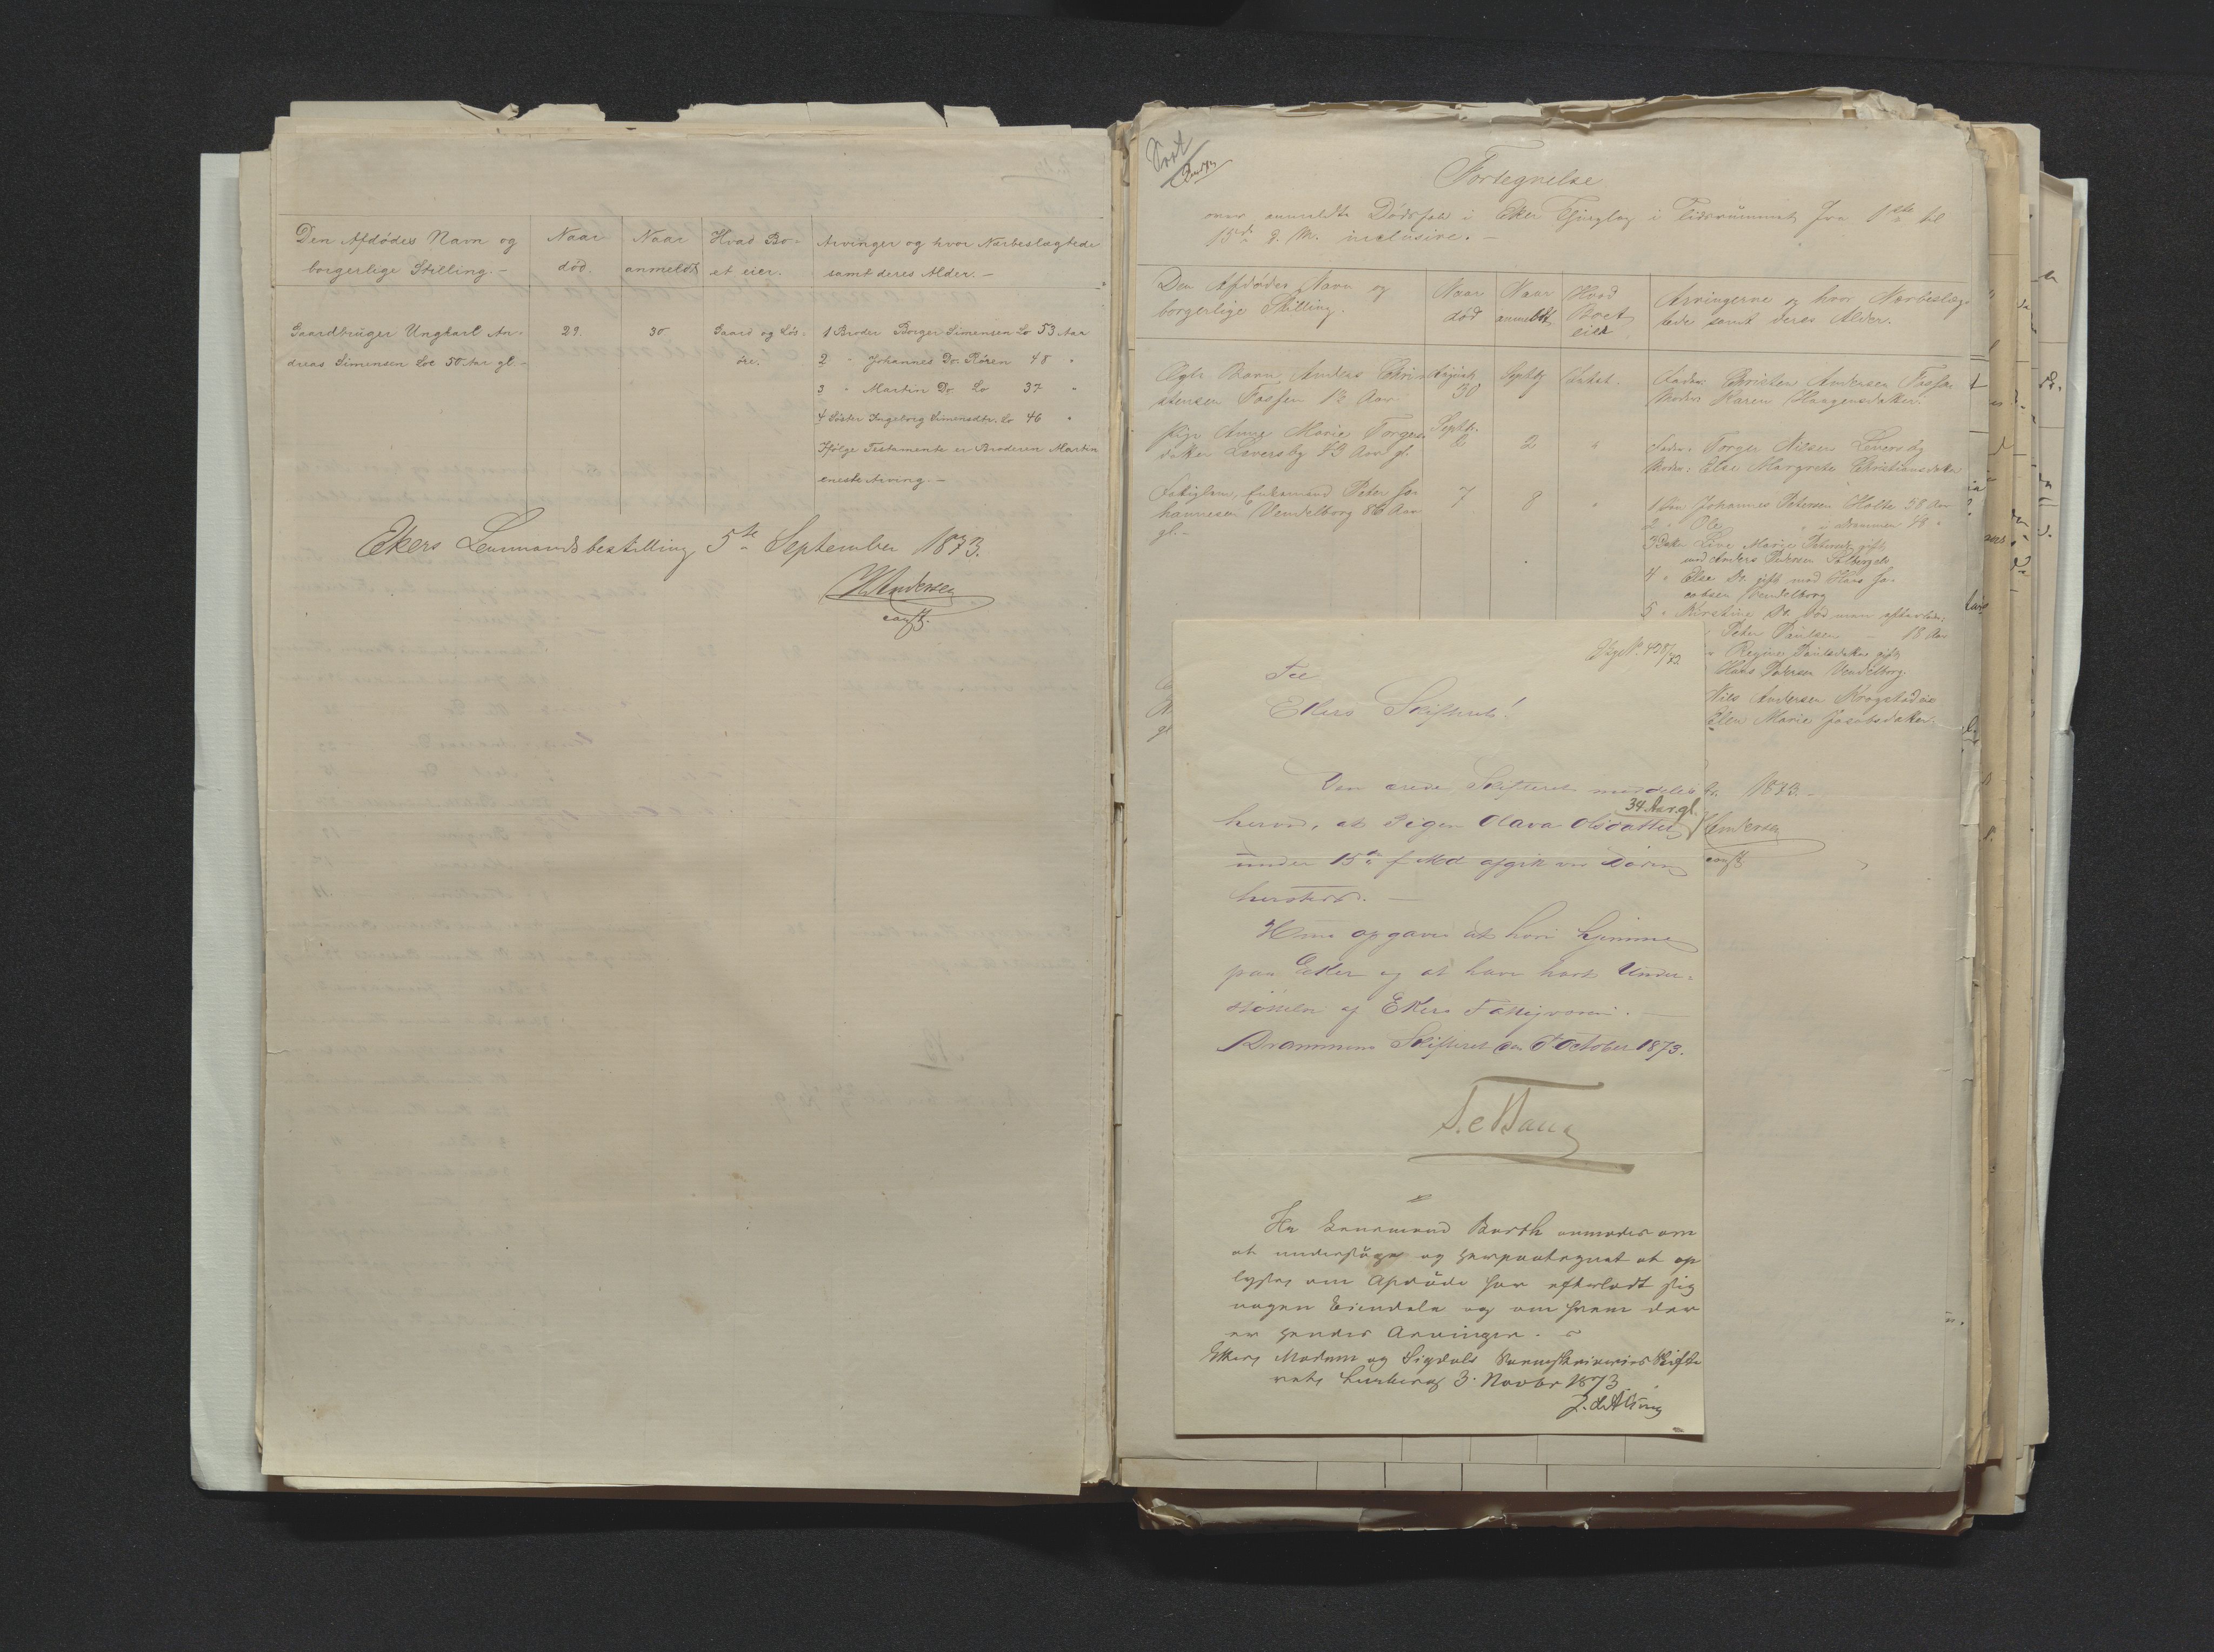 Den Afdødes Navn og
borgerlige Stilling.-
Naar
død.
Naar
anmeldt
Hvad Bo-
et eier.
Arvinger og hvor Nærbeslægtede
samt deres Alder.-
Gaardbruger Ungkarl An-
dreas Simensen Loe 50 Aar gl.-
29.
30
Gaard og Løs-
øre.
1 Broder Borger Simensen Lo 53 Aar
2 " Johannes Do. Røren 48 "
3 " Martin Do. Lo 37 "
4 Søster Ingeborg Simensdtr. Lo 46 "
Ifølge Testamente er Broderen Martin
eneste Arving.-
Ekers Lensmandsbestilling 5te September 1873.
Andersen
const.
Fortegnelse
over anmeldte Dødsfald i Eker Thinglag i Tidsrummet fra 1ste til
15de d. M. inclusive.-
Den Afdødes Navn og
borgerlige Stilling.
Naar
død
Naar
anmeldt
Hvad
Boet
eier
Arvingerne og hvor Nærbeslæg-
tede samt deres Alder.
Ægte Barn Anders Chri-
stensen Fossen 1½ Aar
August
30
Septbr
Intet.
Fader: Christen Andersen Fosse
Moder: Karen Haagensdatter.
Pige Anne Marie Torgers-
datter Leversby 23 Aar gl.
Septbr.
2
2
"
Fader: Torger Nilsen Leversby
Moder: Else Margrete Christiansdatter
Fattiglem, Enkemand Peter Jo-
hannesen Vendelborg 86 Aar
gl.-
7
8
"
1 Søn Johannes Petersen Holte 58 Aar
2 " Ole " i Drammen 48 "
3 Datter Live Marie Petersdtr gift
med Anders Pedersen Solberg
4 " Else Do. gift med Hans Ja-
cobsen Vendelborg
5 " Kirstine Do. død men efterlader:
Peter Paulsen - 18 Aar
" Regine Paulsdatter gift
Hans Pedersen Vendelborg.
Nils Andersen Krogstadeie
Elen Marie Jacobsdatter
1873.-
Andersen
const.
Til
Ekers Skifteret!
Den ærede Skifteret meddeles
34 Aar gl.
herved, at Pigen Olava Olsdatter
under 15de f. Md afgik ved Døden
hersteds.-
Hun opgaves at høre hjemme
paa Eker og at have havt Under-
støttelse af Ekers Fattigvæsen.
Drammens Skifteret den October 1873.
Hr Lensmand Barth anmodes om
at undersøge og herpaategnet at op
lyse om Afdøde har efterladt sig
nogen Eiendele og om hvem der
er hendes Arvinger.
Ekers Modum og Sigdals Sorenskriveries Skifte
ret, 3. Novbr 1873